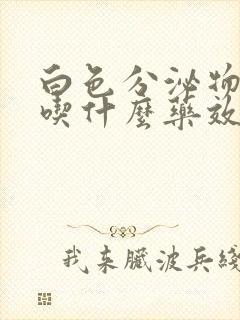 白色分泌物
喫什麼藥效
我来臟波兵綫